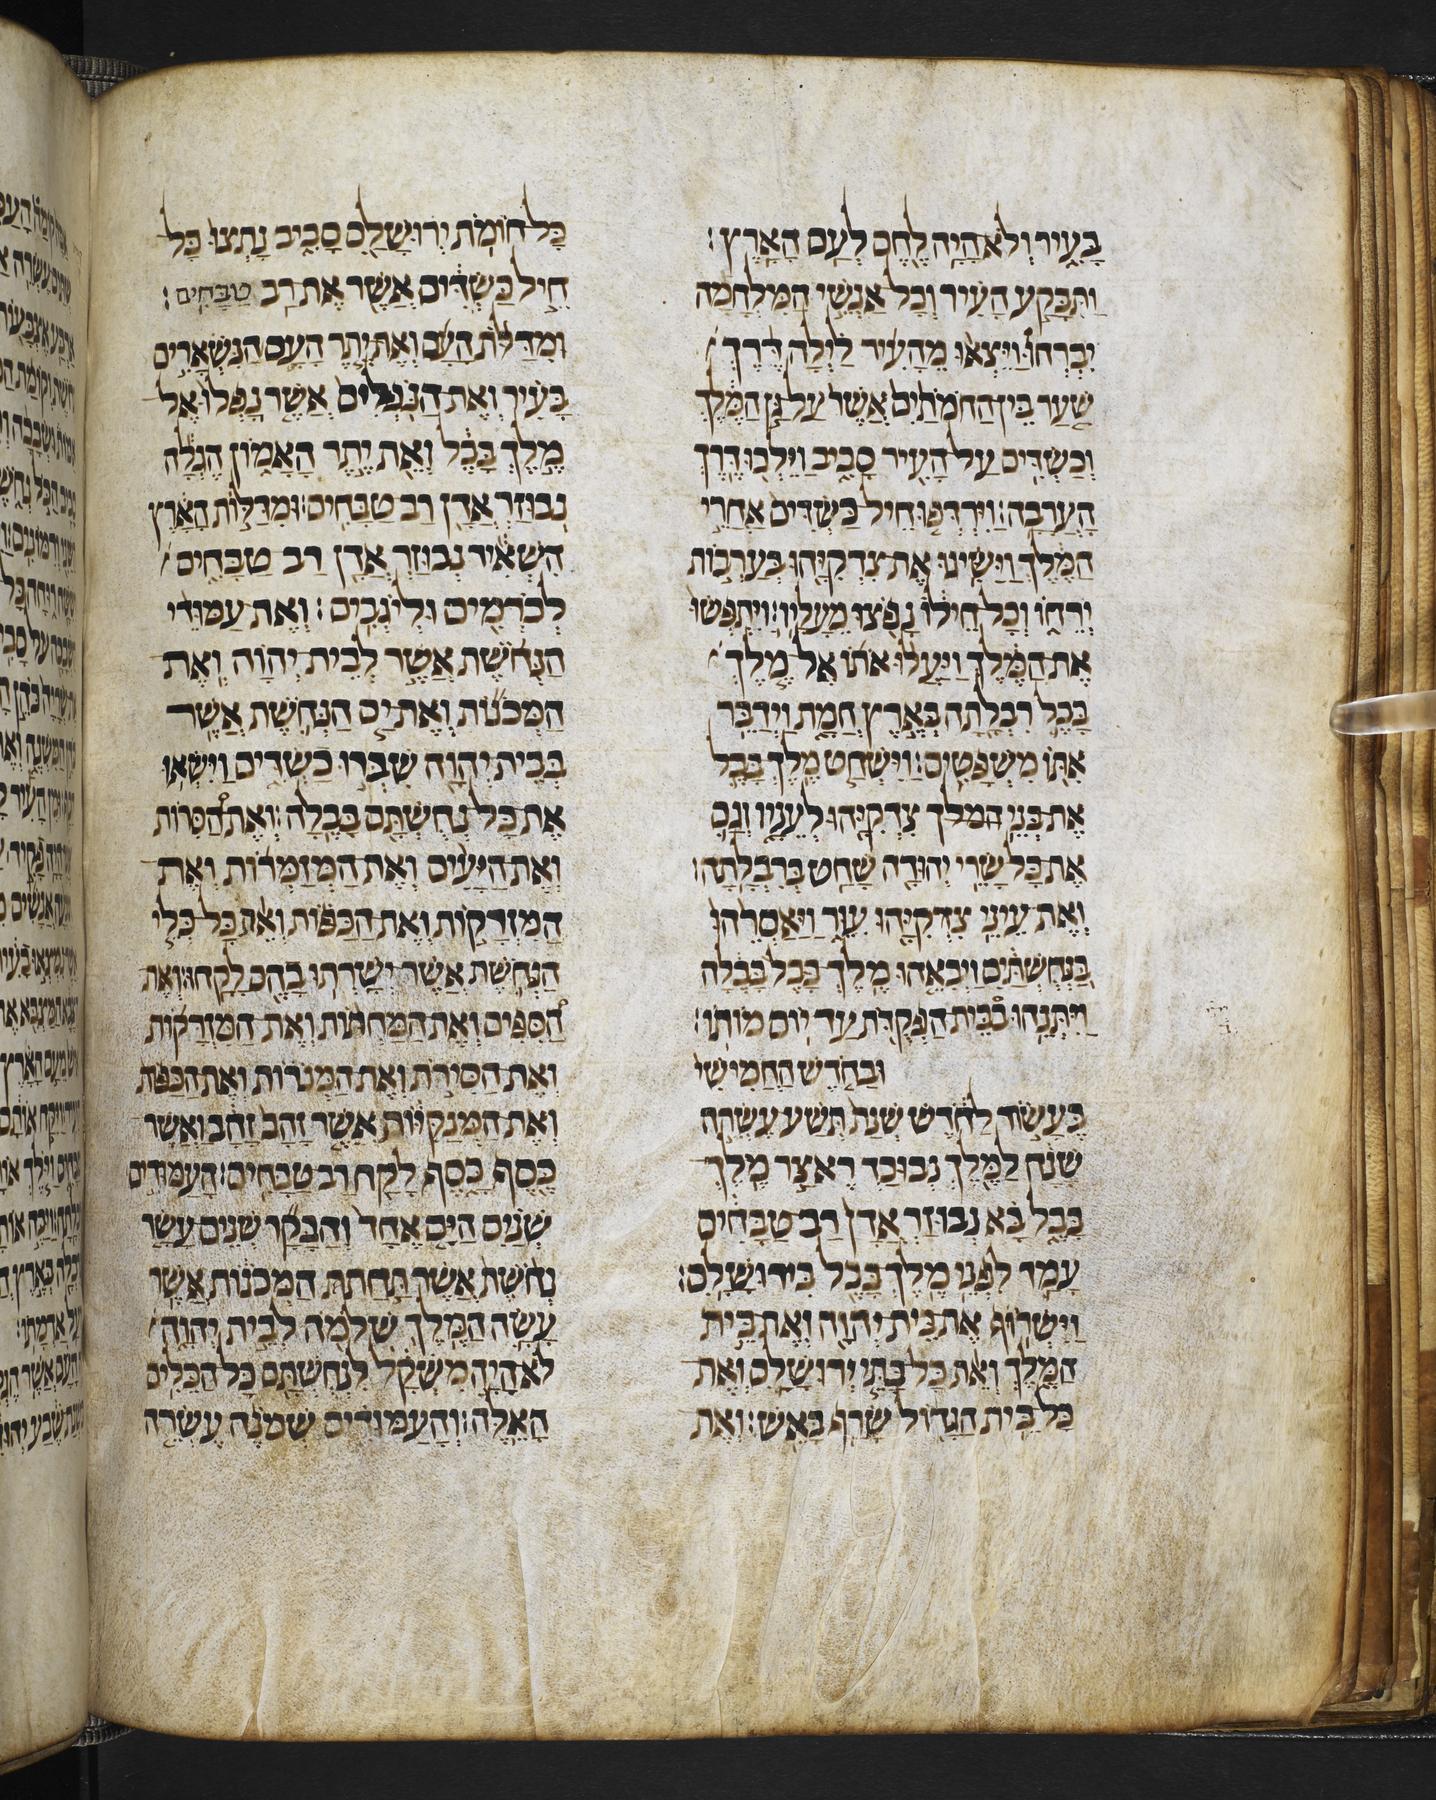 בעיר ולא היה לחם לעם הארץ׃
ותבקע העיר וכל אנשי המלחמה
יברחו ויצאו מהעיר לילה דרך
שער בין החמתים אשר על גן המלך
וכשדים על העיר סביב וילכו דרך
הערבה׃ וירדפו חיל כשדים אחרי
המלך וישיגו את צדקיהו בערבות
ירחו וכל חילו נפצו מעליו׃ ויתפשו
את המלך ויעלו אתו אל מלך
בבל רבלתה בארץ חמת וידבר
אתו משפטים׃ וישחט מלך בבל
את בני המלך צדקיהו לעיניו וגם
את כל שרי יהודה שחט ברבלתה׃
ואת עיני צדקיהו עור ויאסרהו
בנחשתים ויבאהו מלך בבל בבלה
ויתנהו בבית הפקדת עד יום מותו׃
ובחדש החמישי
בעשור לחדש שנת תשע עשרה
שנה למלך נבוכד ראצר מלך
בבל בא נבוזר אדן רב טבחים
עמד לפני מלך בבל בירושלם׃
וישרוף את בית יהוה ואת בית
המלך ואת כל בתי ירושלם ואת
כל בית הגדול שרף באש׃ ואת
כל חומת ירושלם סביב נתצו כל
חיל כשדים אשר את רב טבחים׃
ומדלת העם ואת יתר העם הנשארים
בעיר ואת הנפלים אשר נפלו אל
מלך בבל ואת יתר האמון הגלה
נבוזר אדן רב טבחים׃ ומדלות הארץ
השאיר נבוזר אדן רב טבחים
לכרמים וליגבים׃ ואת עמודי
הנחשת אשר לבית יהוה ואת
המכנות ואת ים הנחשת אשר
בבית יהוה שברו כשדים וישאו
את כל נחשתם בבלה׃ ואת הסרות
ואת היעים ואת המזמרות ואת
המזרקות ואת הכפות ואת כל כלי
הנחשת אשר ישרתו בהם לקחו׃ ואת
הספים ואת המחתות ואת המזרקות
ואת הסירת ואת המנרות ואת הכפות
ואת המנקיות אשר זהב זהב ואשר
כסף כסף לקח רב טבחים׃ העמודים
שנים הים אחד והבקר שנים עשר
נחשת אשר תחתת המכנות אשר
עשה המלך שלמה לבית יהוה
לא היה משקל לנחשתם כל הכלים
האלה׃ והעמודים שמנה עשרה